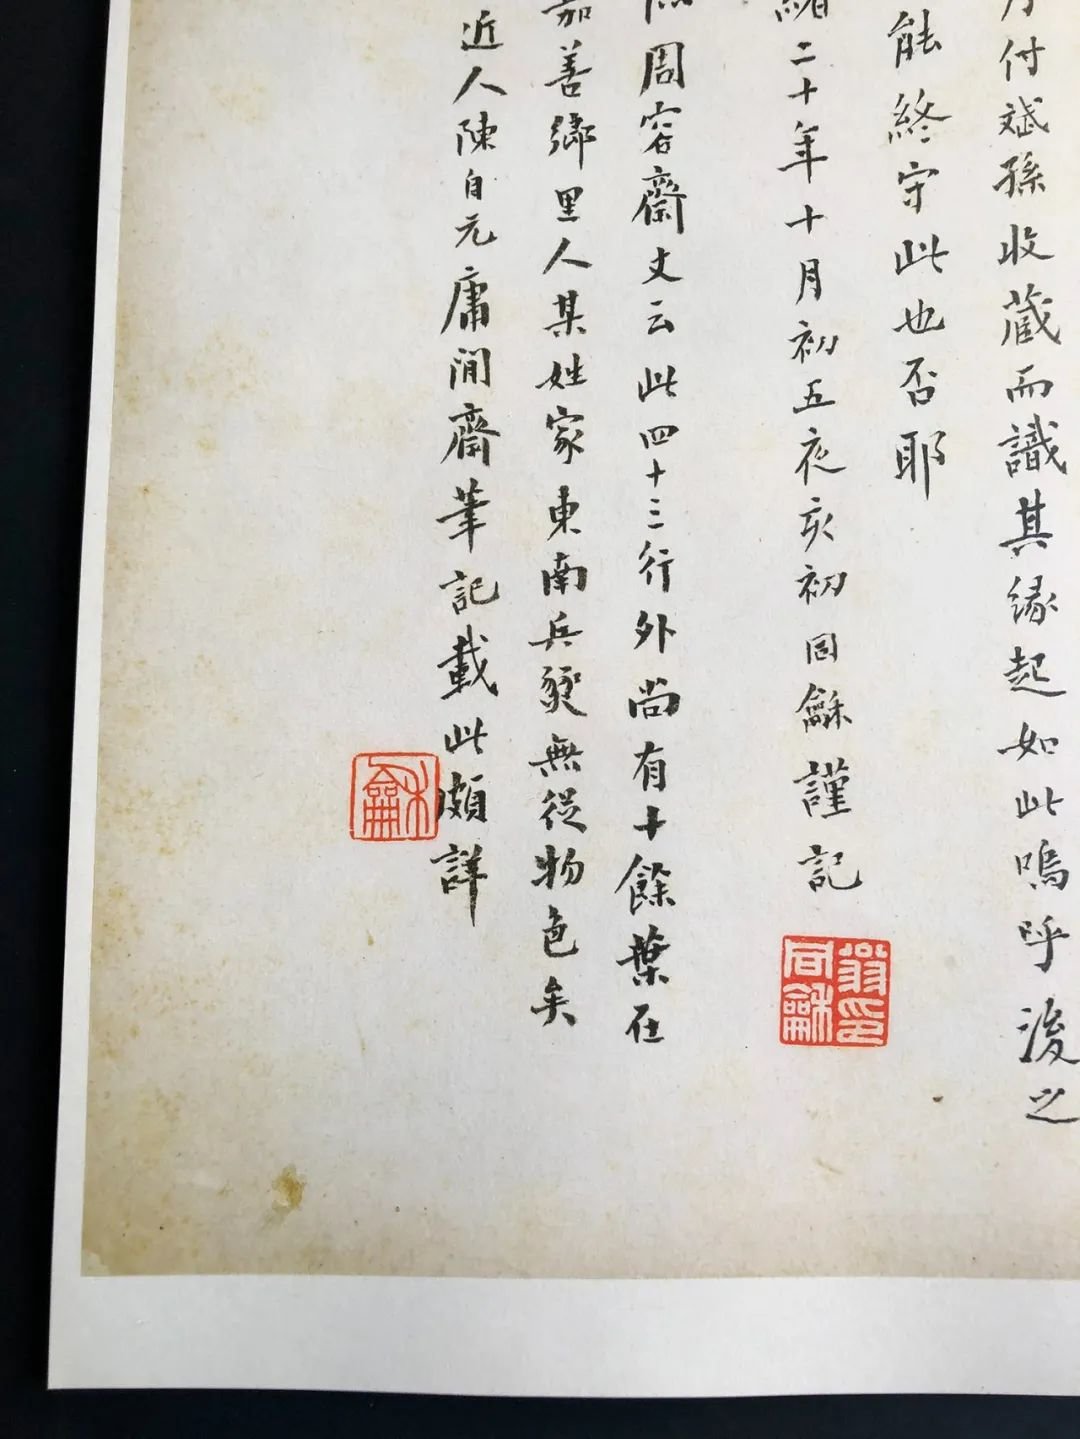 付斌孫收藏而識其缘起如此嗚呼後之
能終守此也否耶
緒二十年十月初五夜亥初同龢謹記
翁同龢印
周容齋丈云此四十三行外尚有十餘葉在
嘉善鄉里人某姓家東南兵燹無從物色矣
近人陳自元庸閒齋筆記載此頗詳